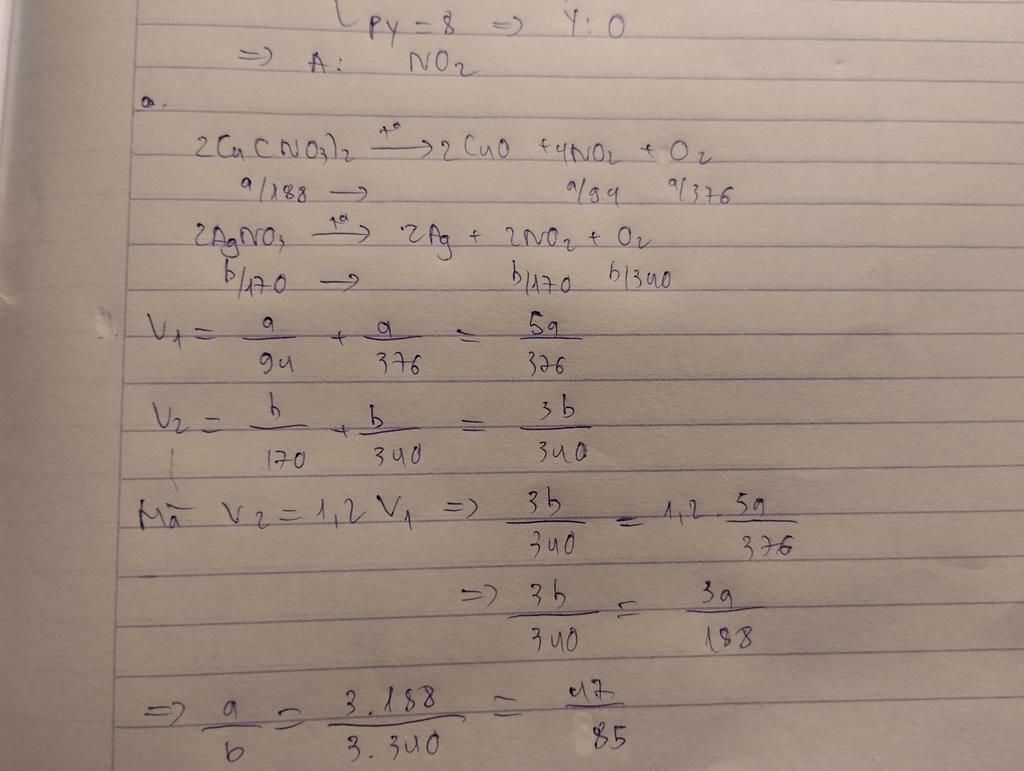 PY = 8 => Y: O
=> A: NO2
a.
2Cu(NO3)2 --t°--> 2CuO + 4NO2 + O2
a/188 -> a/94 a/376
2AgNO3 --t°--> 2Ag + 2NO2 + O2
b/170 -> b/170 b/340
V1 = a/94 + a/376 = 5a/376
V2 = b/170 + b/340 = 3b/340
Mà V2 = 1,2 V1 => 3b/340 = 1,2 . 5a/376
=> 3b/340 = 3a/188
=> a/b = 3.188/3.340 = 47/85